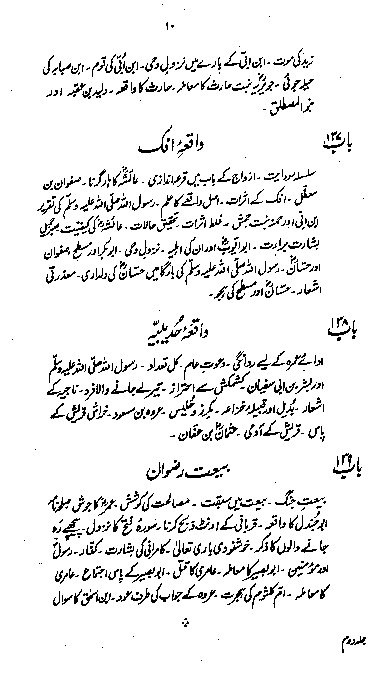 ۱۰
زید کی موت ۔ ابن ابی کے بارے میں نزول وحی ۔ ابن ابیؓ کی قوم ۔ ابن صبابہ کی
حیلہ جوئی ۔ جویریہؓ بنت حارث کا معاملہ ۔ حارث کا واقعہ ۔ ولید بن عقبہ اور
بنو المصطلق ۔
باب ۱۳۷ واقعۂ افک
سلسلہ روایت ۔ ازواج کے باب میں قرعہ اندازی ۔ عائشہؓ کا ہار گرنا ۔ صفوان بن
معطل ۔ افک کے اثرات ۔ اصل واقعے کا علم ۔ رسول اللہ صلی اللہ علیہ وسلم کی تقریر
ابن ابی اور حمنہ بنت جحش ۔ غلط اثرات ۔ تحقیق حالات ۔ عائشہؓ کی کیفیت صبر جمیل
بشارت برأت ۔ ابو ایوبؓ اور ان کی اہلیہ ۔ نزول وحی ۔ ابوبکر اور مسطح صفوان
اور حسانؓ ۔ رسول اللہ صلی اللہ علیہ وسلم کی بارگاہ میں حسانؓ کی دلداری ۔ معذرتی
اشعار ۔ حسانؓ اور مسطح کی ہجو ۔
باب ۱۳۸ واقعۂ حدیبیہ
ادائے عمرہ کے لیے روانگی ۔ دعوت عام ۔ کل تعداد ۔ رسول اللہ صلی اللہ علیہ وسلم
اور بشر بن ابی سفیان ۔ کشمکش سے احتراز ۔ تیر لے جانے والا فرد ۔ ناجیہ کے
اشعار ۔ بدیل اور قبیلہ خزاعہ ۔ مکرز و حلیس ۔ عروہ بن مسعود ۔ خراش قریش کے
پاس ۔ قریش کے آدمی ۔ عثمانؓ بن عفان ۔
باب ۱۳۹ بیعت رضوان
بیعت جنگ ۔ بیعت میں سبقت ۔ مصالحت کی کوشش ۔ عمرؓ کا جوش صلحنامہ
ابو جندل کا واقعہ ۔ قربانی کے اونٹ ذبح کرنا ۔ سورۂ فتح کا نزول ۔ پیچھے رہ
جانے والوں کا ذکر ۔ خوشنودی باری تعالیٰ ۔ کامرانی کی بشارت ۔ کفار ۔ رسولؐ
اور مومنین ۔ ابو بصیر کا معاملہ ۔ عامری کا قتل ۔ ابو بصیر کے پاس اجتماع ۔ عامری
کا معاملہ ۔ ام کلثوم کی ہجرت ۔ عروہ کے جواب کی طرف عود ۔ ابن اسحق کا سوال
جلد دوم